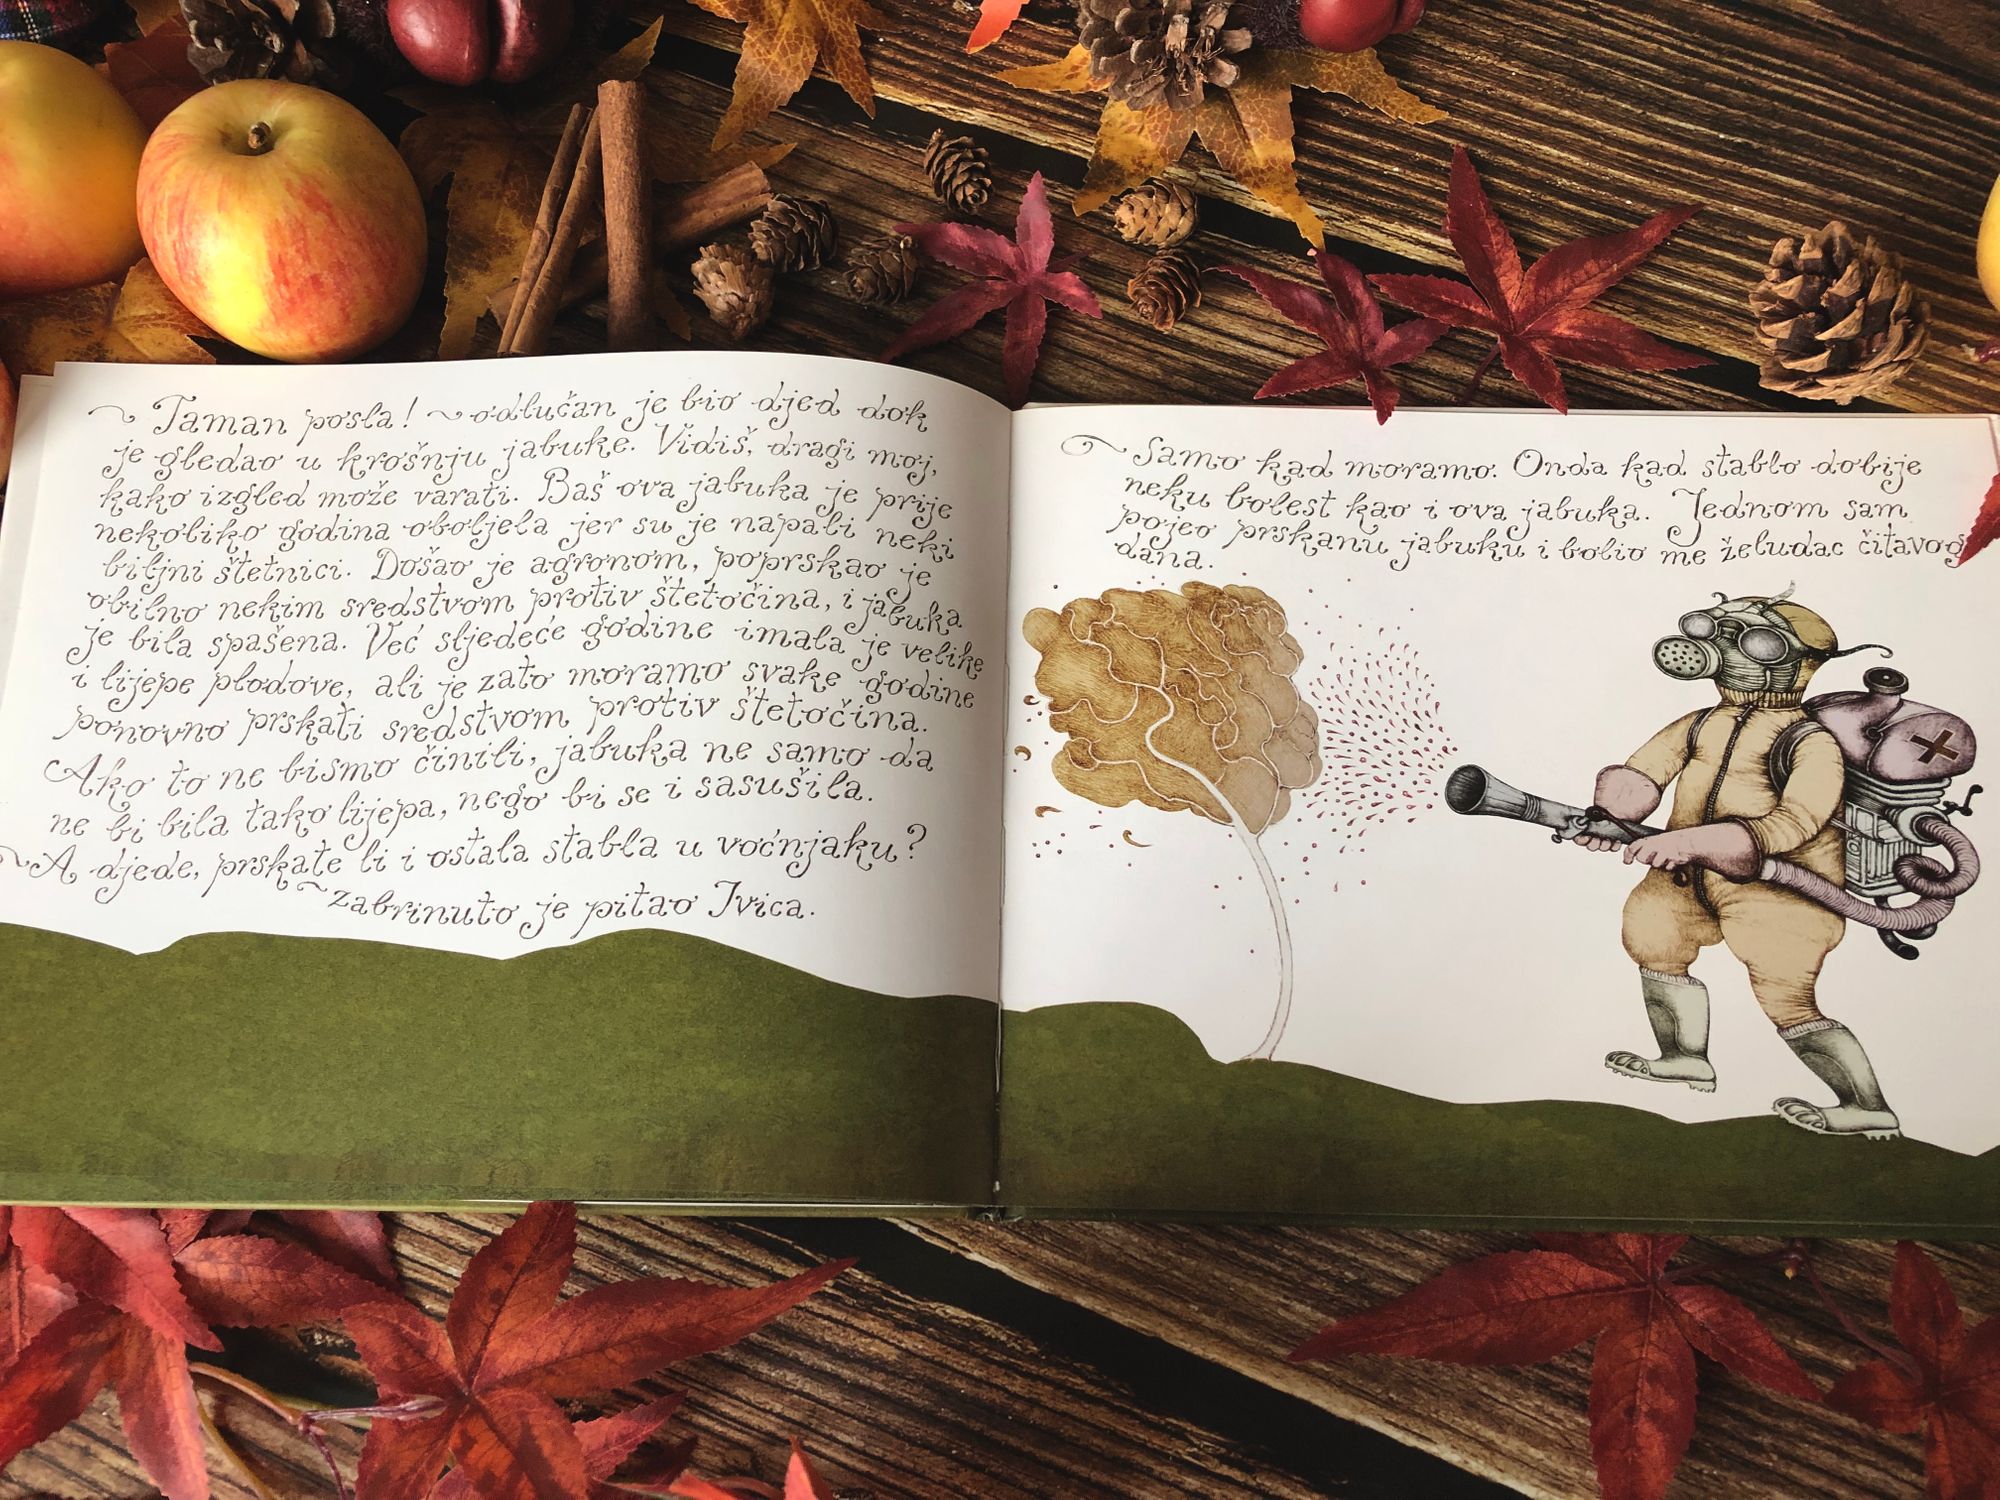 ~ Taman posla! ~ odlučan je bio djed dok
je gledao u krošnju jabuke. Vidiš, dragi moj,
kako izgled može varati. Baš ova jabuka je prije
nekoliko godina oboljela jer su je napali neki
biljni štetnici. Došao je agronom, poprskao je
obilno nekim sredstvom protiv štetočina, i jabuka
je bila spašena. Već sljedeće godine imala je velike
i lijepe plodove, ali je zato moramo svake godine
ponovno prskati sredstvom protiv štetočina.
Ako to ne bismo činili, jabuka ne samo da
ne bi bila tako lijepa, nego bi se i sasušila.
~ A djede, prskate li i ostala stabla u voćnjaku?
~ zabrinuto je pitao Ivica.
~ Samo kad moramo. Onda kad stablo dobije
neku bolest kao i ova jabuka. Jednom sam
pojeo prskanu jabuku i bolio me želudac čitavog
dana.